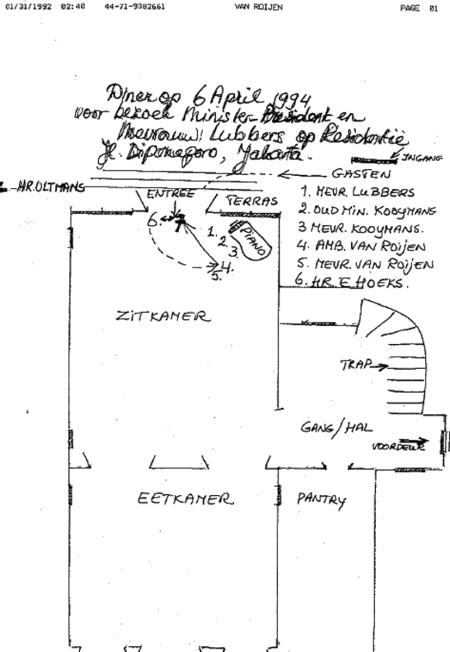 01/31/1992 02:40 44-71-9382661 VAN ROIJEN PAGE 01
Diner op 6 April 1994
voor bezoek Minister-President en
Mevrouw Lubbers op Residentie
Jl. Diponegoro, Jakarta.
INGANG
GASTEN
HR. OLTMANS
ENTREE
TERRAS
1. MEVR. LUBBERS
2. OUD MIN. KOOYMANS
3 MEVR. KOOYMANS.
4. AMB. VAN ROIJEN
5. MEVR. VAN ROIJEN
6. HR. E HOEKS.
6.
1.
2.
3.
PIANO
4.
5.
ZITKAMER
TRAP
GANG/HAL
VOORDEUR
EETKAMER
PANTRY